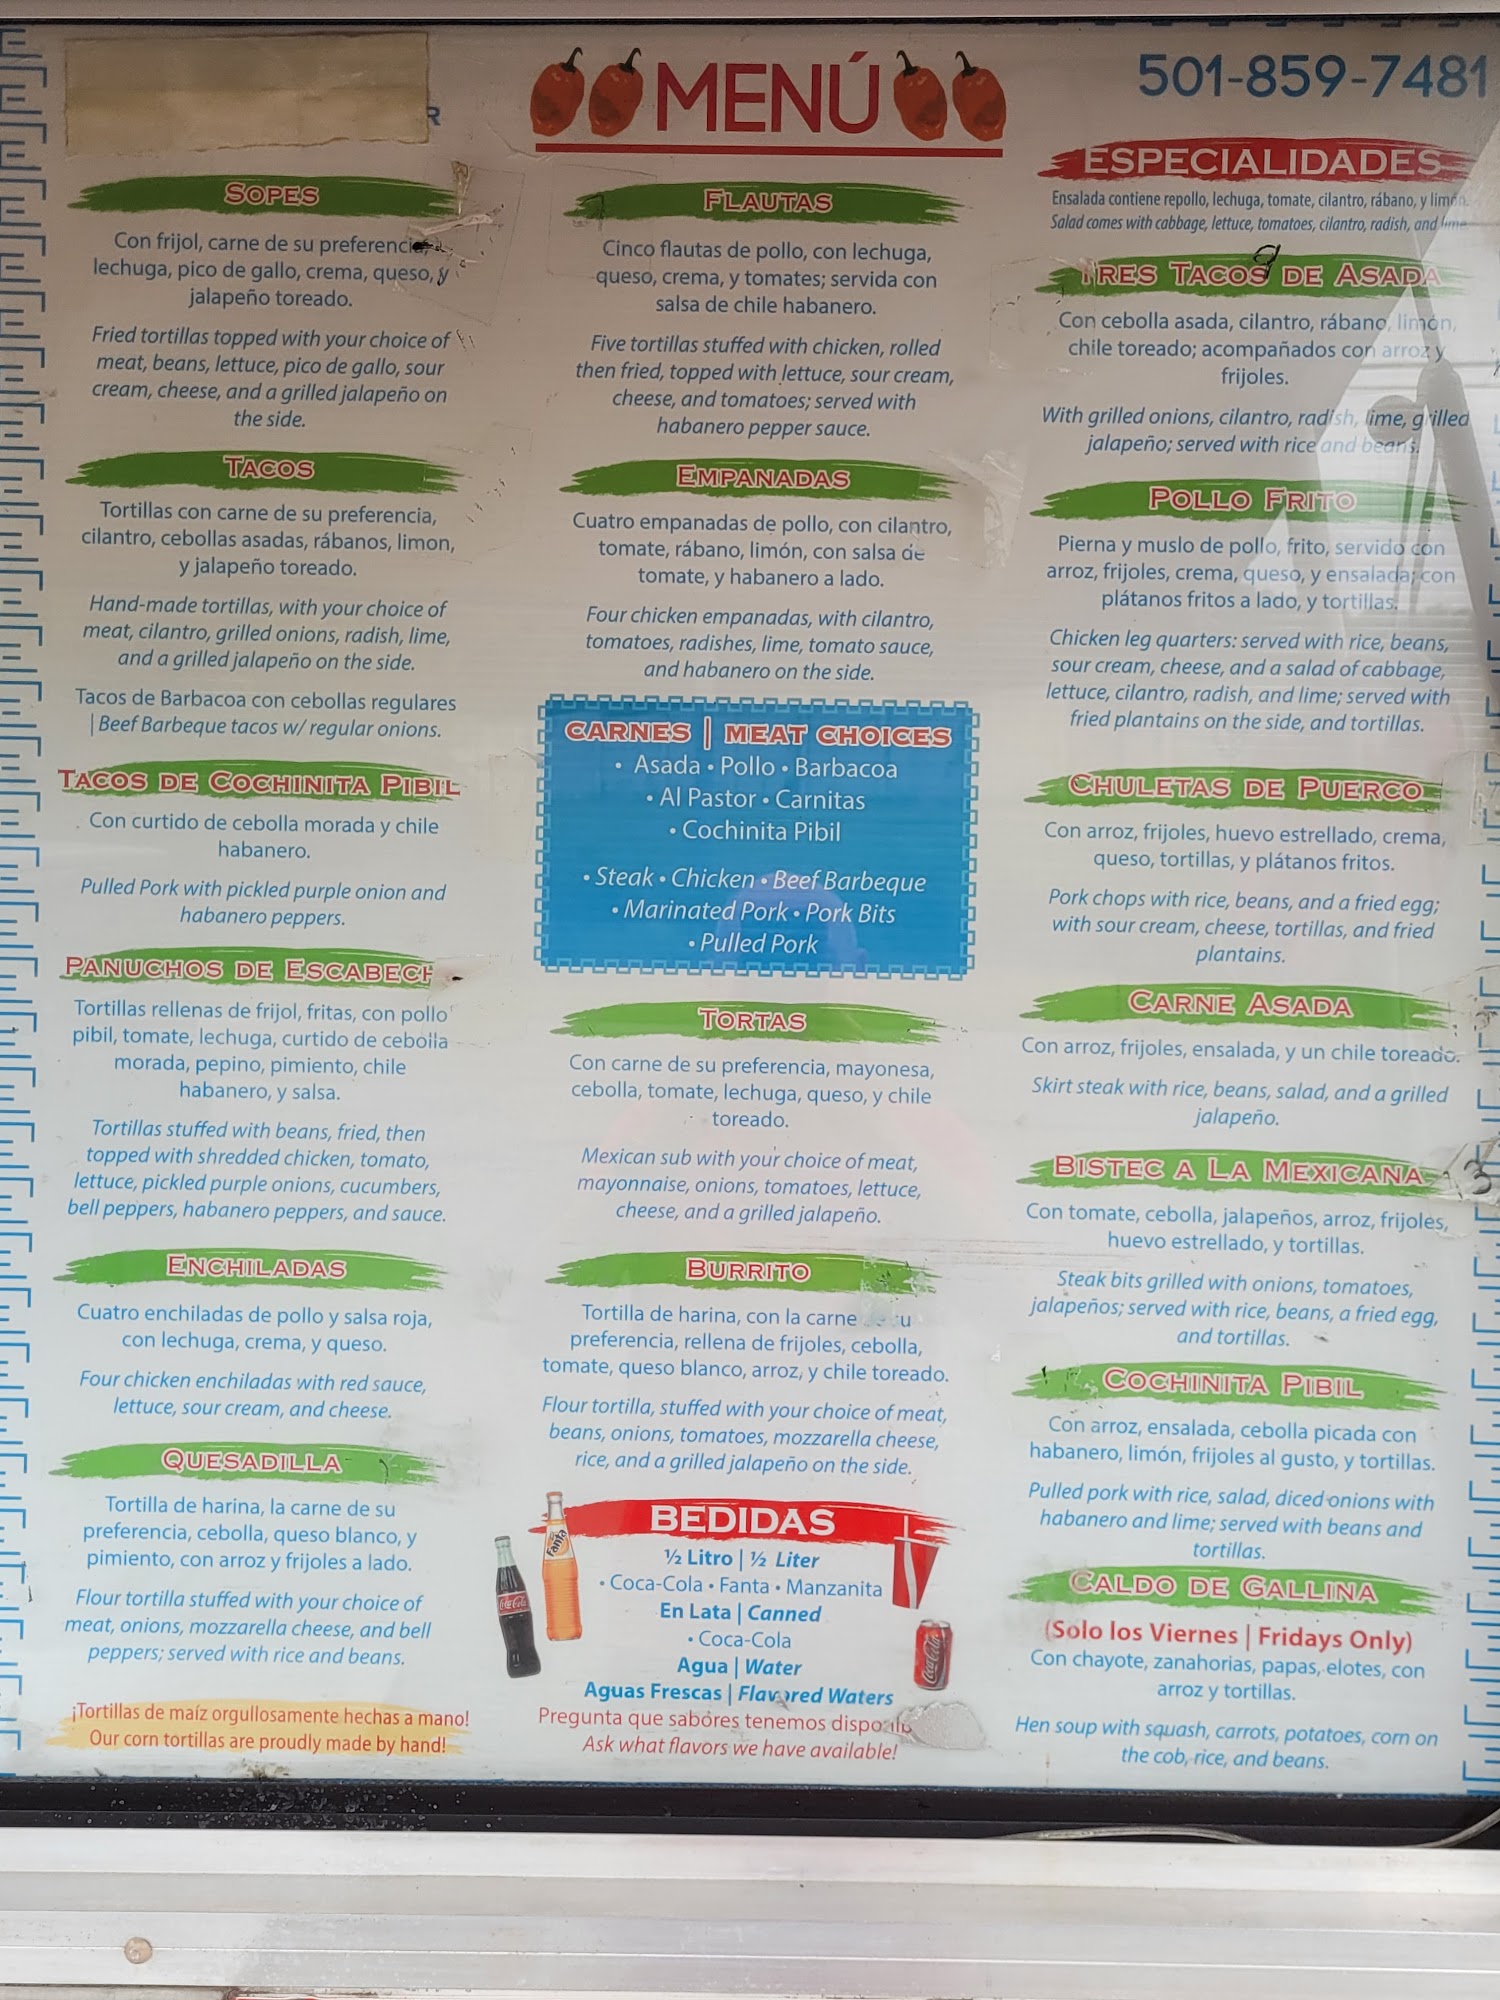 R
MENÚ
501-859-7481
SOPES
Con frijol, carne de su preferencia,
lechuga, pico de gallo, crema, queso, y
jalapeño toreado.
Fried tortillas topped with your choice of
meat, beans, lettuce, pico de gallo, sour
cream, cheese, and a grilled jalapeño on
the side.
TACOS
Tortillas con carne de su preferencia,
cilantro, cebollas asadas, rábanos, limon,
y jalapeño toreado.
Hand-made tortillas, with your choice of
meat, cilantro, grilled onions, radish, lime,
and a grilled jalapeño on the side.
Tacos de Barbacoa con cebollas regulares
| Beef Barbeque tacos w/ regular onions.
TACOS DE COCHINITA PIBIL
Con curtido de cebolla morada y chile
habanero.
Pulled Pork with pickled purple onion and
habanero peppers.
PANUCHOS DE ESCABECH
Tortillas rellenas de frijol, fritas, con pollo
pibil, tomate, lechuga, curtido de cebolla
morada, pepino, pimiento, chile
habanero, y salsa.
Tortillas stuffed with beans, fried, then
topped with shredded chicken, tomato,
lettuce, pickled purple onions, cucumbers,
bell peppers, habanero peppers, and sauce.
ENCHILADAS
Cuatro enchiladas de pollo y salsa roja,
con lechuga, crema, y queso.
Four chicken enchiladas with red sauce,
lettuce, sour cream, and cheese.
QUESADILLA
Tortilla de harina, la carne de su
preferencia, cebolla, queso blanco, y
pimiento, con arroz y frijoles a lado.
Flour tortilla stuffed with your choice of
meat, onions, mozzarella cheese, and bell
peppers; served with rice and beans.
¡Tortillas de maíz orgullosamente hechas a mano!
Our corn tortillas are proudly made by hand!
FLAUTAS
Cinco flautas de pollo, con lechuga,
queso, crema, y tomates; servida con
salsa de chile habanero.
Five tortillas stuffed with chicken, rolled
then fried, topped with lettuce, sour cream,
cheese, and tomatoes; served with
habanero pepper sauce.
EMPANADAS
Cuatro empanadas de pollo, con cilantro,
tomate, rábano, limón, con salsa de
tomate, y habanero a lado.
Four chicken empanadas, with cilantro,
tomatoes, radishes, lime, tomato sauce,
and habanero on the side.
CARNES | MEAT CHOICES
• Asada • Pollo • Barbacoa
• Al Pastor • Carnitas
• Cochinita Pibil
• Steak • Chicken • Beef Barbeque
• Marinated Pork • Pork Bits
• Pulled Pork
TORTAS
Con carne de su preferencia, mayonesa,
cebolla, tomate, lechuga, queso, y chile
toreado.
Mexican sub with your choice of meat,
mayonnaise, onions, tomatoes, lettuce,
cheese, and a grilled jalapeño.
BURRITO
Tortilla de harina, con la carne de su
preferencia, rellena de frijoles, cebolla,
tomate, queso blanco, arroz, y chile toreado.
Flour tortilla, stuffed with your choice of meat,
beans, onions, tomatoes, mozzarella cheese,
rice, and a grilled jalapeño on the side.
BEDIDAS
½ Litro | ½ Liter
• Coca-Cola • Fanta • Manzanita
En Lata | Canned
• Coca-Cola
Agua | Water
Aguas Frescas | Flavored Waters
Pregunta que sabores tenemos disponib
Ask what flavors we have available!
Fanta
Coca-Cola
Coca-Cola
ESPECIALIDADES
Ensalada contiene repollo, lechuga, tomate, cilantro, rábano, y limón.
Salad comes with cabbage, lettuce, tomatoes, cilantro, radish, and lime
TRES TACOS DE ASADA
Con cebolla asada, cilantro, rábano, limón,
chile toreado; acompañados con arroz y
frijoles.
With grilled onions, cilantro, radish, lime, grilled
jalapeño; served with rice and beans.
POLLO FRITO
Pierna y muslo de pollo, frito, servido con
arroz, frijoles, crema, queso, y ensalada; con
plátanos fritos a lado, y tortillas.
Chicken leg quarters: served with rice, beans,
sour cream, cheese, and a salad of cabbage,
lettuce, cilantro, radish, and lime; served with
fried plantains on the side, and tortillas.
CHULETAS DE PUERCO
Con arroz, frijoles, huevo estrellado, crema,
queso, tortillas, y plátanos fritos.
Pork chops with rice, beans, and a fried egg;
with sour cream, cheese, tortillas, and fried
plantains.
CARNE ASADA
Con arroz, frijoles, ensalada, y un chile toreado.
Skirt steak with rice, beans, salad, and a grilled
jalapeño.
BISTEC A LA MEXICANA
13
Con tomate, cebolla, jalapeños, arroz, frijoles,
huevo estrellado, y tortillas.
Steak bits grilled with onions, tomatoes,
jalapeños; served with rice, beans, a fried egg,
and tortillas.
COCHINITA PIBIL
Con arroz, ensalada, cebolla picada con
habanero, limón, frijoles al gusto, y tortillas.
Pulled pork with rice, salad, diced onions with
habanero and lime; served with beans and
tortillas.
CALDO DE GALLINA
(Solo los Viernes | Fridays Only)
Con chayote, zanahorias, papas, elotes, con
arroz y tortillas.
Hen soup with squash, carrots, potatoes, corn on
the cob, rice, and beans.